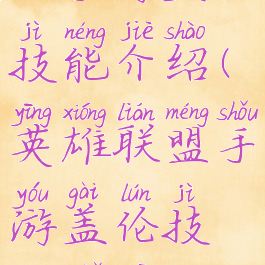 jì néng jiè shào
技能介绍(
yīng xióng lián méng shǒu
英雄联盟手
yóu gài lún jì
游盖伦技